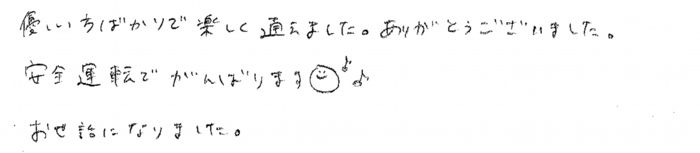 優しい方ばかりで楽しく通えました。ありがとうございました。
安全運転でがんばります☺♪♪
お世話になりました。